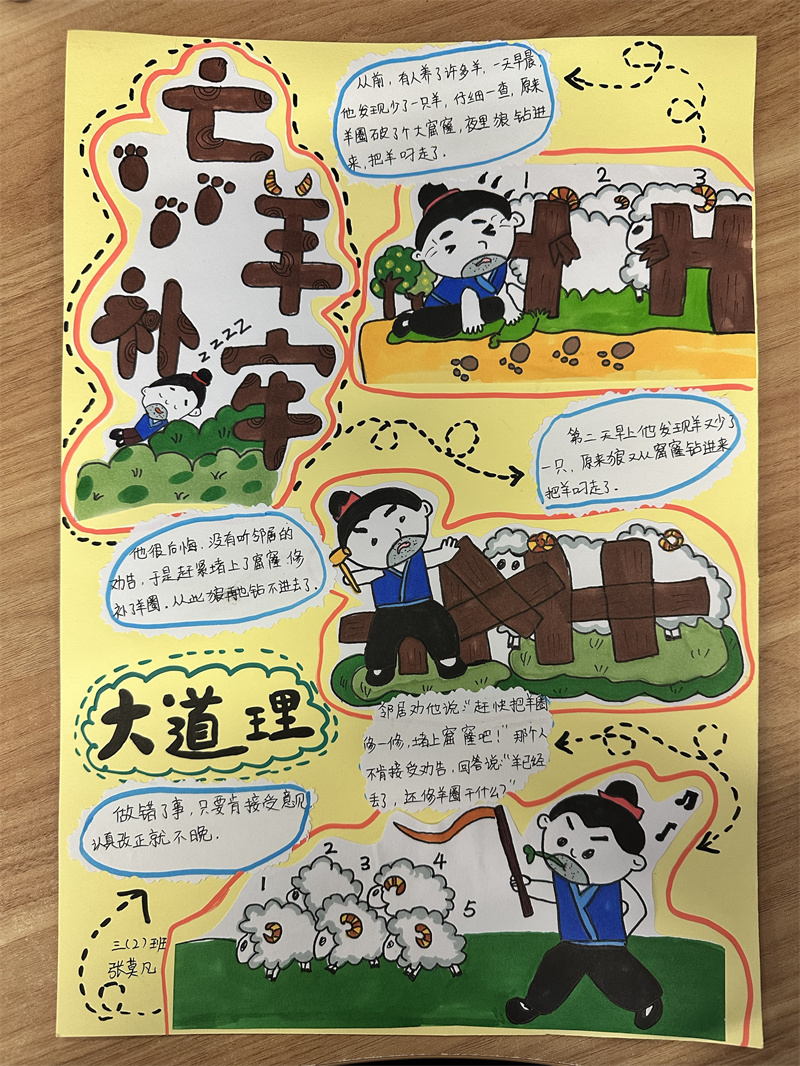 亡
羊
补
牢
zzzz
从前，有人养了许多羊，一天早晨，
他发现少了一只羊，仔细一查，原来
羊圈破了个大窟窿，夜里狼钻进
来，把羊叼走了．
1 2 3
第二天早上他发现羊又少了
一只，原来狼又从窟窿钻进来
把羊叼走了．
他很后悔，没有听邻居的
劝告，于是赶紧堵上了窟窿 修
补了羊圈．从此狼再也钻不进去了．
邻居劝他说：“赶快把羊圈
修一修，堵上窟窿吧！”那个人
不肯接受劝告，回答说：“羊已经
丢了，还修羊圈干什么？”
大道理
做错了事，只要肯接受意见
认真改正就不晚．
1 2 3 4 5
三（2）班
张莫凡